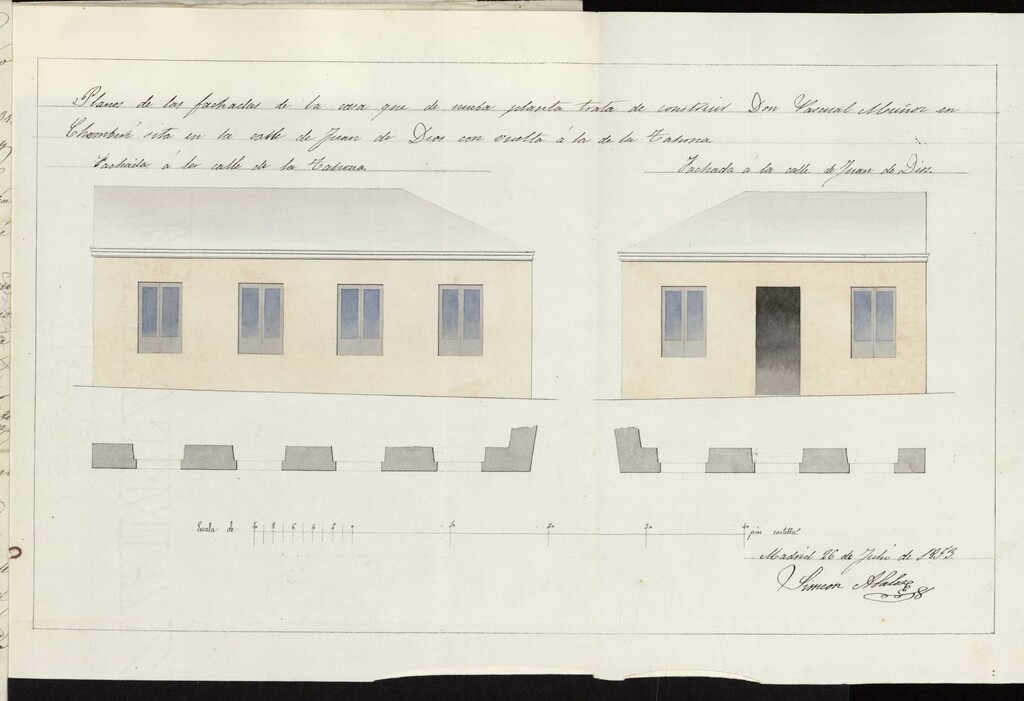 Planos de las fachadas de la casa que de nueba planta trata de construir Don Pascual Muñoz en
Chamberí sita en la calle de Juan de Dios con vuelta á la de la Tahona
Fachada á la calle de la Tahona.
Fachada á la calle de Juan de Dios.
Escala de 10 8 6 4 2 0 10 20 30 40 pies castellˢ
Madrid 26 de Julio de 1853.
Simeon